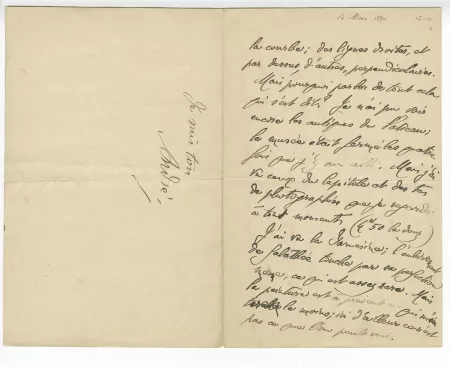 4 Mai 189
la courbe; des lignes droites, et
par dessus, d'autres, perpendiculaires.
Mais pourquoi parler de tout cela
qui s'est dit? Je n'ai pu voir
encore les antiques du Vatican;
le musée était fermé les quatre
fois que j'y suis allé. Mais j'ai
vu ceux du Capitole et des tas
de photographies que je regarde
à tout moment. (50 la douz)
J'ai vu la Farnésine; l'enlèvement
de Galathée touche par sa perfection
ce qui est assez rare. Mais
la peinture est à
le moins; ici d'ailleurs ce n'est
pas ce que l'on peut voir.
Je suis ton
André,